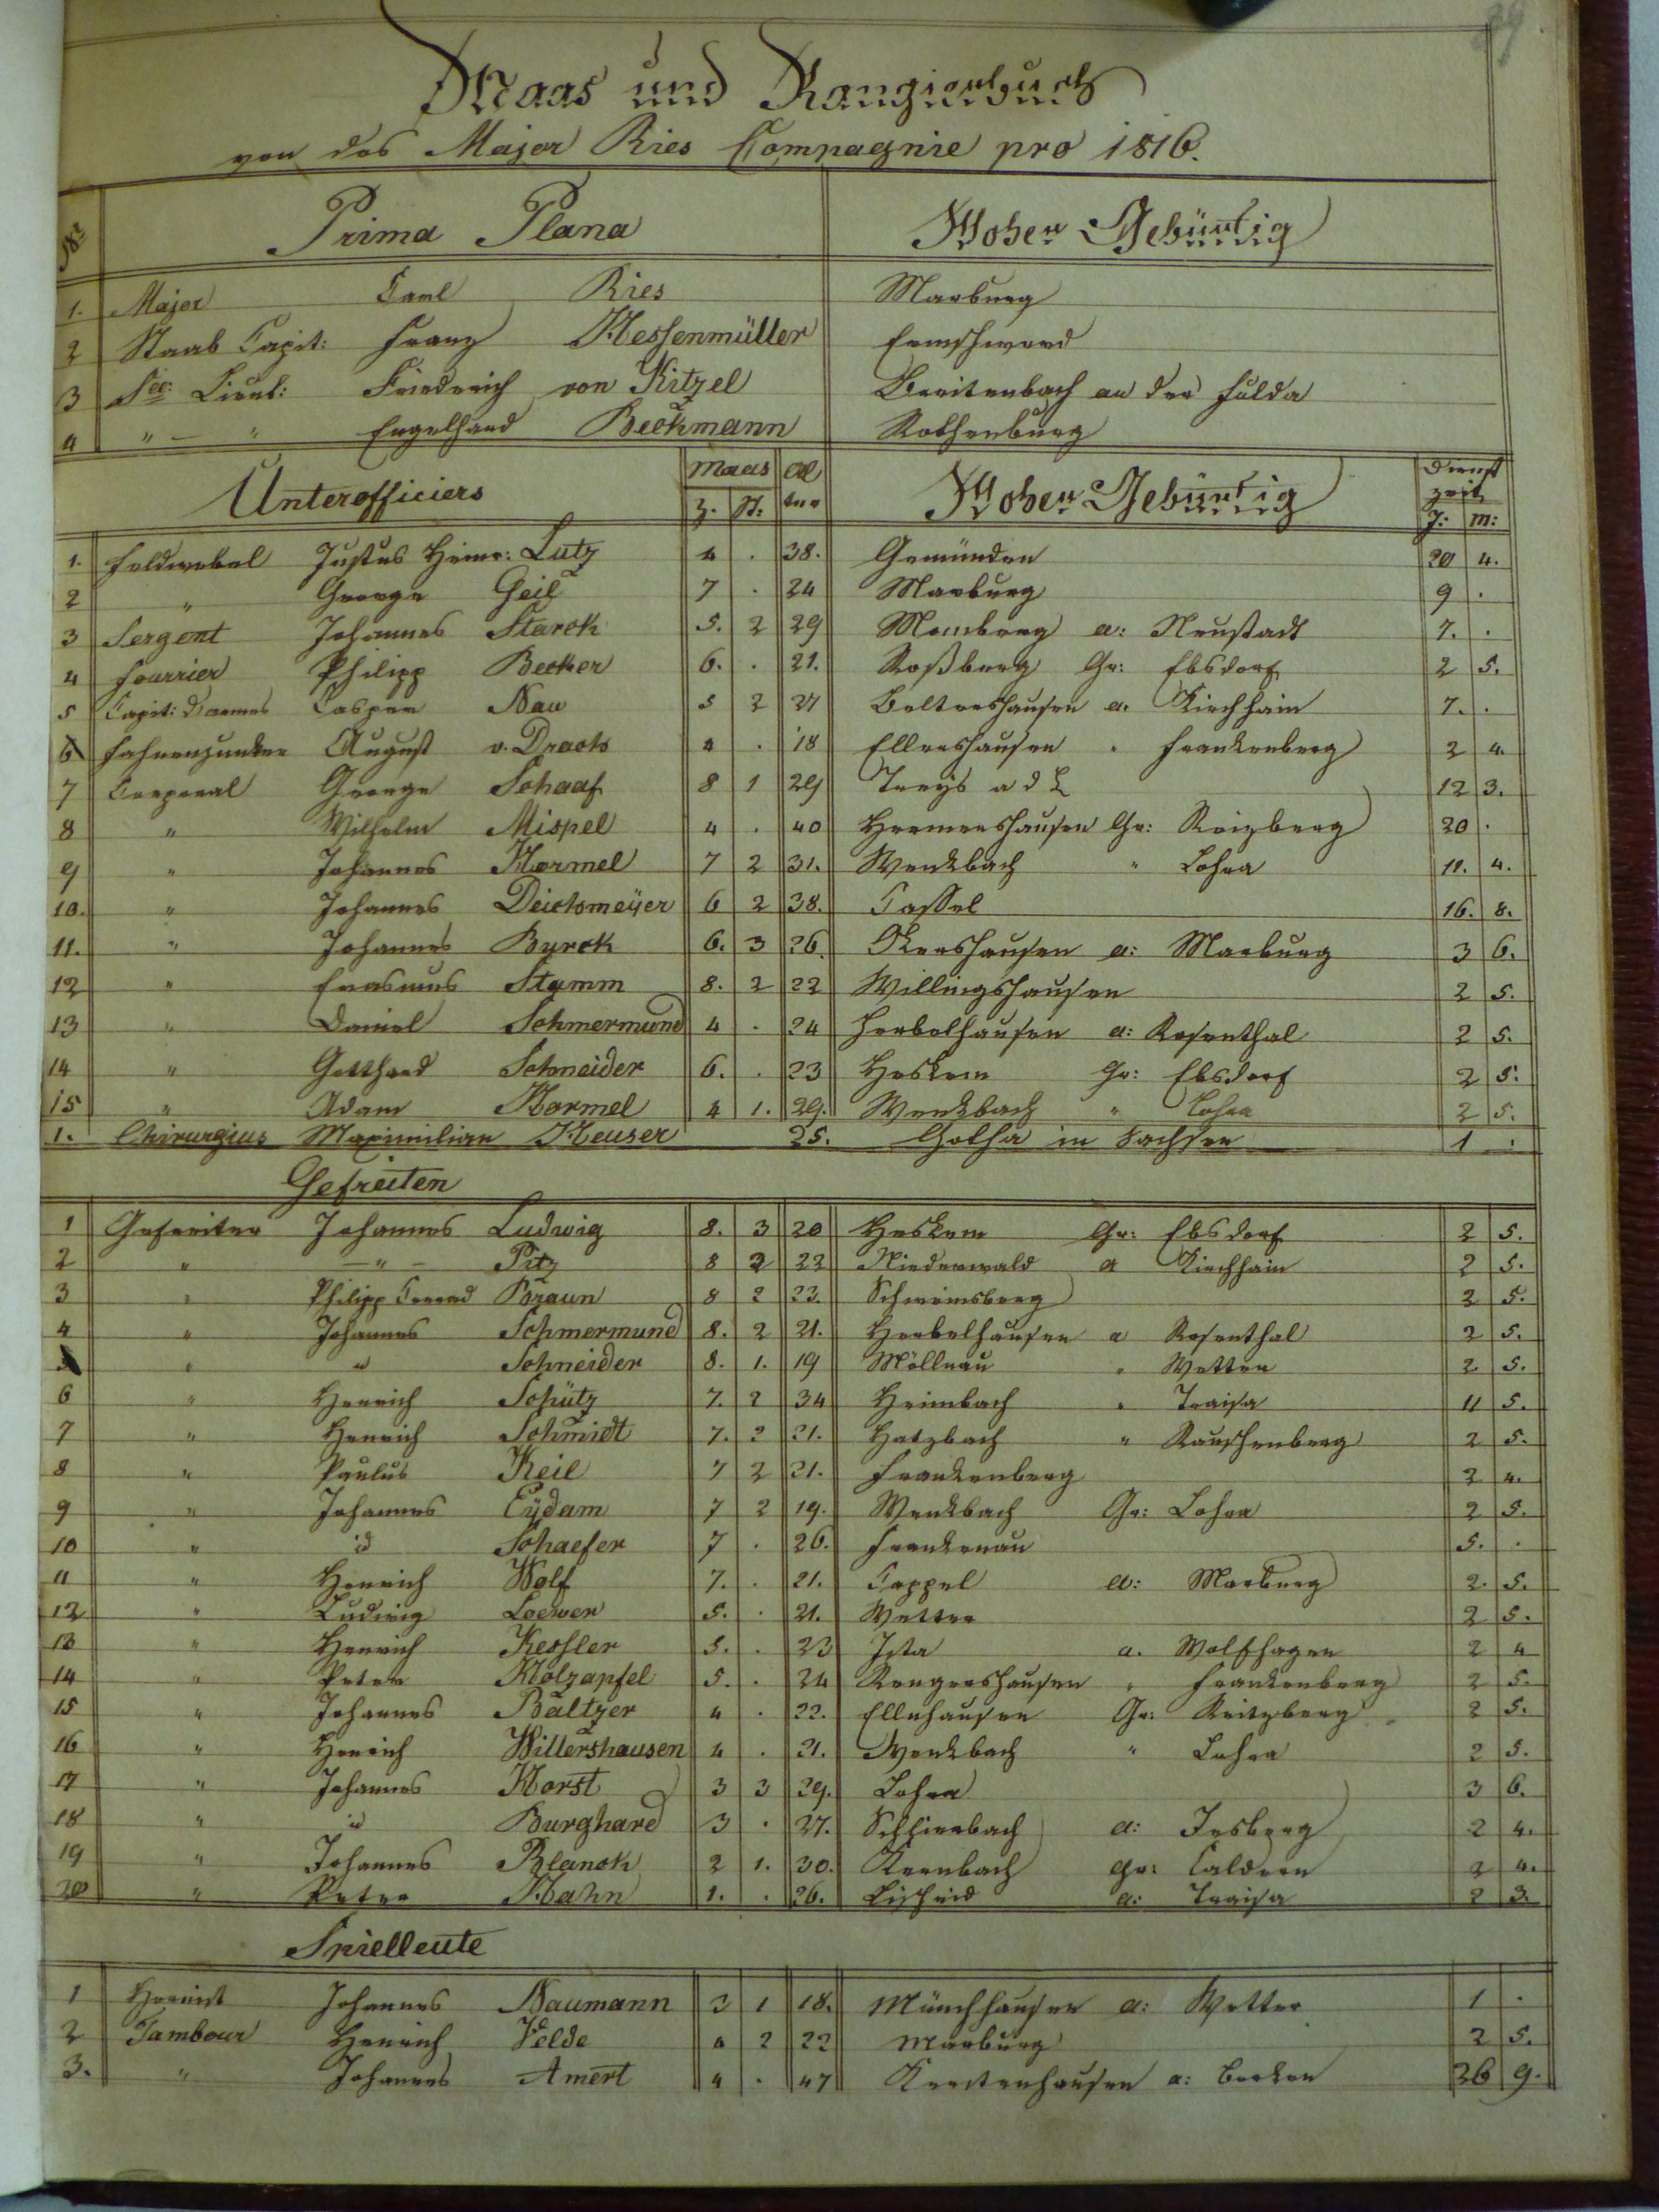 Maas und Rangierbuch
von des Major Ries Compagnie pro 1816.
Nr. Prima Plana Woher Gebürtig
1. Major Carl Ries Marburg
2 Staab Capit: Franz Hessenmüller Ermschwerd
3 Sec: Lieut: Friedrich von Kitzel Breitenbach an der Fulda
4 " — " Engelhard Beckmann Rothenburg
Unterofficiers Maas Al Woher Gebürtig Dienst
zeit
Z. St: ter J: M:
1. Feldwebel Justus Heinr: Lutz 4 . 38. Gemünden 20 4.
2 " George Geil 7 . 24 Marburg 9 .
3 Sergent Johannes Starck 5. 2 29 Momberg a: Neustadt 7. .
4 Fourrier Philipp Becker 6. . 21. Roßberg Gr: Ebsdorf 2 5.
5 Capit: d'armes Casper Nau 5 2 27 Beltershausen a. Kirchhain 7. .
6 Fahnenjunker August v. Drach 4 . 18 Ellershausen . Frankenberg 2 4
7 Corporal George Schaaf 8 1 29 Treys a d L 12 3.
8 " Wilhelm Mispel 4 . 40 Hermershausen Gr: Reizberg 20 .
9 " Johannes Hormel 7 2 31. Wenkbach " Lohra 11. 4.
10. " Johannes Deichmeÿer 6 2 38. Cassel 16. 8.
11. " Johannes Burck 6. 3 26. Okershausen a: Marburg 3 6.
12 " Erasmus Stamm 8. 2 22 Willingshausen 2 5.
13 " Daniel Schmermund 4 . 24 Herbelhausen a: Rosenthal 2 5.
14 " Gotthard Schneider 6. . 23 Heskem Gr: Ebsdorf 2 5.
15 " Adam Hormel 4 1. 29. Wenkbach " Lohra 2 5.
1. Chirurgius Maximilian Heuser 25. Gotha in Sachsen 1 .
Gefreiten
1 Gefreiter Johannes Ludwig 8. 3 20 Heskem Gr: Ebsdorf 2 5.
2 " — " — Pitz 8 2 22 Niederwald a Kirchhain 2 5.
3 " Philipp Conrad Braun 8 2 23. Schweinsberg 2 5.
4 " Johannes Schmermund 8. 2 21. Herbelhausen a Rosenthal 2 5.
5 " id Schneider 8. 1. 19 Möllnau . Wetter 2 5.
6 " Henrich Schütz 7. 2 34 Heimbach . Traisa 11 5.
7 " Henrich Schmidt 7. 2 21. Hatzbach " Rauschenberg 2 5.
8 " Paulus Keil 7 2 21. Frankenberg 2 4.
9 " Johannes Eÿdam 7 2 19. Wenkbach Gr: Lohra 2 5.
10 " id Schaefer 7 . 26. Frankenau 5. .
11 " Henrich Wolf 7. . 21. Cappel a: Marburg 2. 5.
12 " Ludwig Loewer 5. . 21. Wetter 2 5.
13 " Henrich Kessler 5. . 23 Ista a. Wolfhagen 2 4
14 " Peter Holzapfel 5. . 24 Rengershausen . Frankenberg 2 5.
15 " Johannes Baltzer 4 . 22. Ellnhausen Gr: Reitzberg 2 5.
16 " Henrich Willershausen 4 . 21. Wenkbach " Lohra 2 5.
17 " Johannes Horst 3 3 29. Lohra 3 6.
18 " id Burghard 3 . 27. Schlierbach a: Jesberg 2 4.
19 " Johannes Blanck 2 1. 30. Kernbach gr: Caldern 2 4.
20 " Peter Hahn 1. . 26. Lischeid a: Traisa 2 3.
Spielleute
1 Hornist Johannes Naumann 3 1 18. Münchhausen a: Wetter 1 .
2 Tambour Henrich Velde 4 2 22 Marburg 2 5.
3. " Johannes Amert 4 . 47 Kerstenhausen a: Borken 26 9.